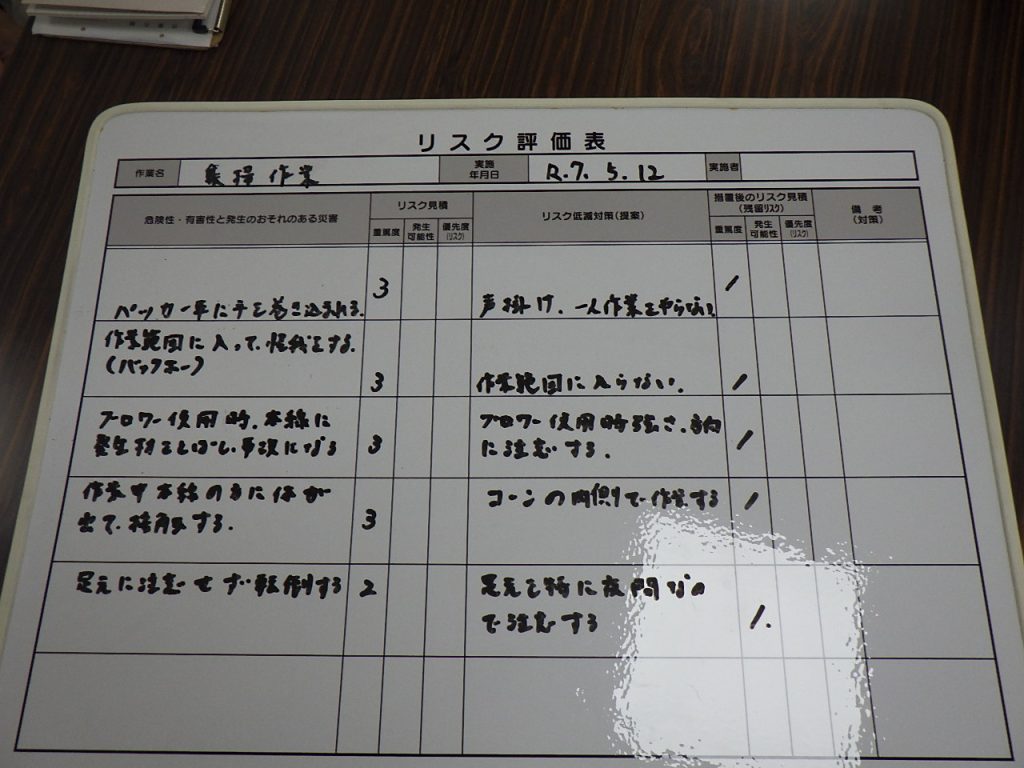 リスク評価表
作業名 集積作業 実施年月日 R.7. 5. 12 実施者
危険性・有害性と発生のおそれのある災害 リスク見積 リスク低減対策(提案) 措置後のリスク見積(残留リスク) 備考(対策)
重篤度 発生可能性 優先度(リスク) 重篤度 発生可能性 優先度(リスク)
パッカー車に手を巻き込まれる。 3 声掛け、一人作業をやらない 1
作業範囲に入って、怪我をする。
(バックホー) 3 作業範囲に入らない。 1
ブロワー使用時、本線に
発生材をとばし、事故になる 3
ブロワー使用時強さ、方向
に注意する。 1
作業中本線の方に体が
出て、接触する。 3
コーンの内側で作業する 1
足元に注意せず転倒する 2
足元を特に夜間なの
で注意する 1.